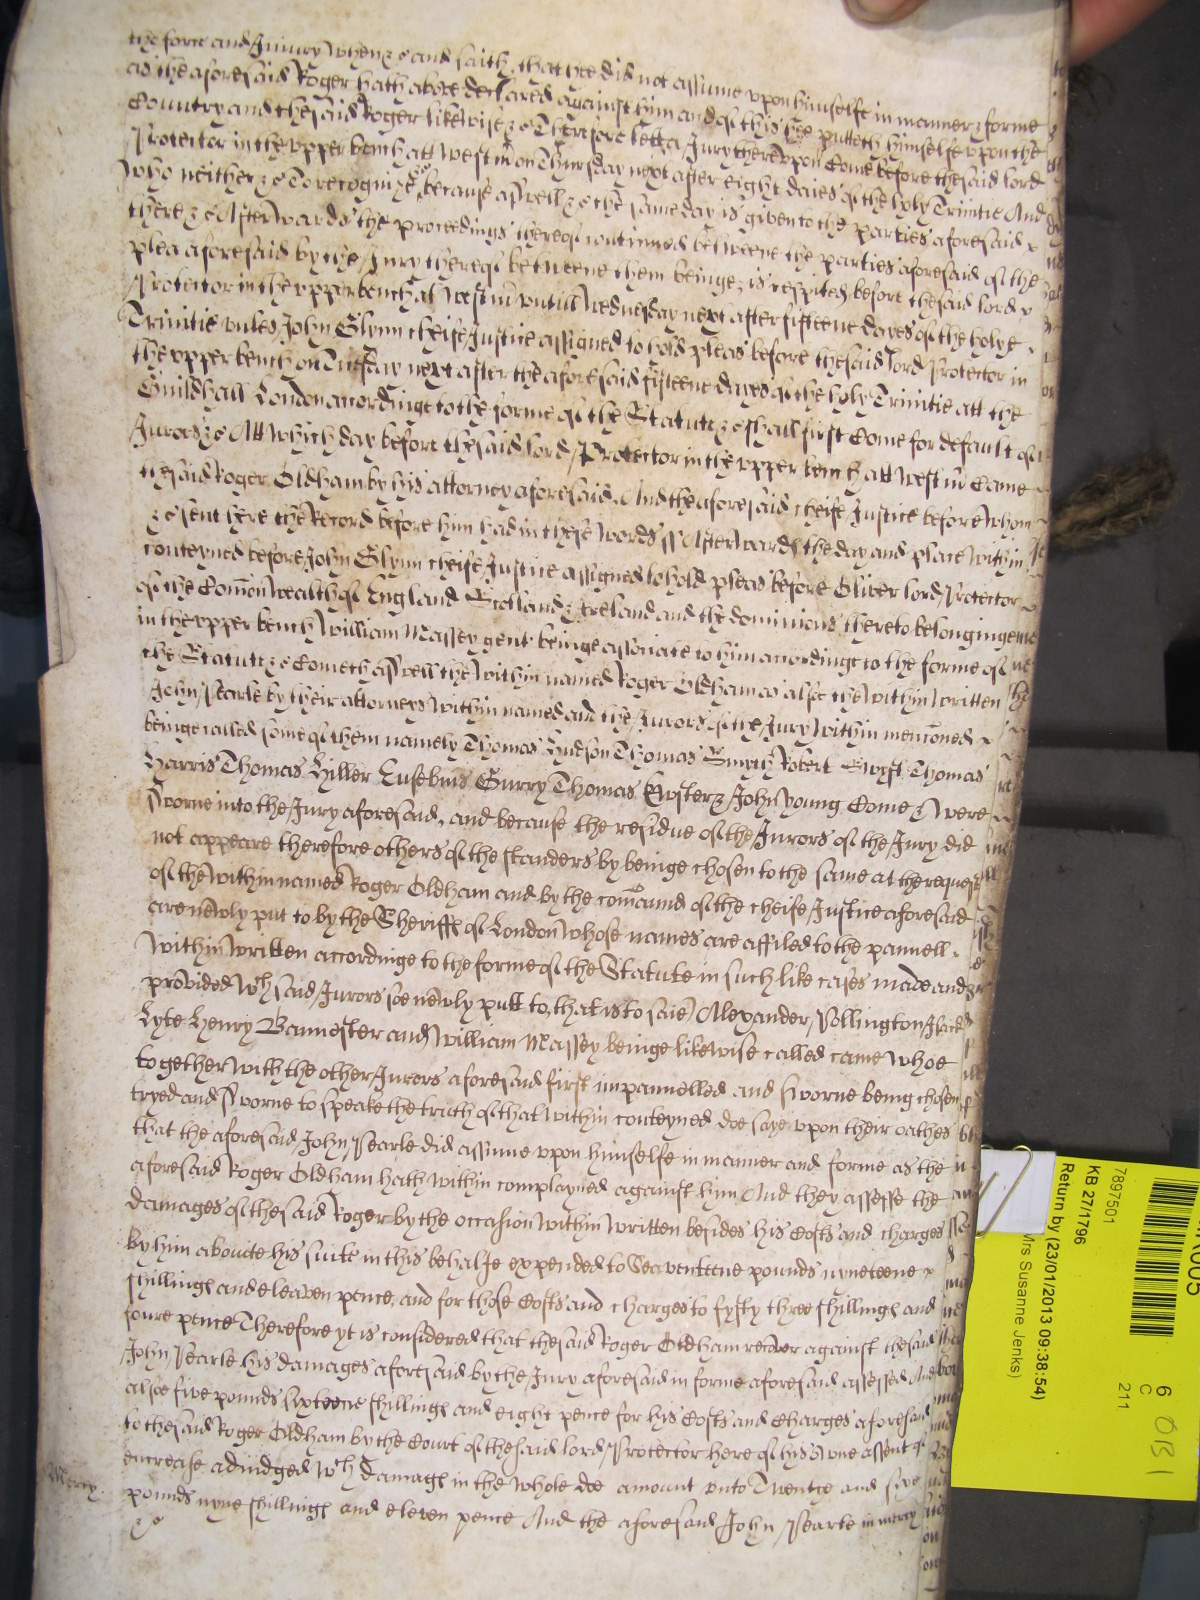 the force and Injury when &c and saith that hee did not assume upon himselfe in manner & forme
as the aforesaid Roger hath above declared against him and of this hee putteth himselfe vpon the
Country and the said Roger likewise &c Therefore lett a Jury thereupon Come before the said lord
Protector in the vpper bench att Westm on Thursday next after eight daies of the holy Trinitie And
who neither &c To recognize &c because aswell &c the same day is given to the parties aforesaid
there &c Afterwards the proceedings thereof continued betweene the parties aforesaid of the
plea aforesaid by the Jury thereof betweene them beinge, is respited before the said lord
Protector in the vpper bench at Westm vntill Wednesday next after fifteene dayes of the holye
Trinitie vnles John Glynn cheife Justice assigned to hold pleas before the said lord Protector in
the vpper bench on Tuesday next after the aforesaid fifteene dayes of the holy Trinitie att the
Guildhall London accordinge to the forme of the Statute &c shall first Come for default of
Jurors &c Att which day before the said lord Protector in the vpper bench att Westm Came
the said Roger Oldham by his attorney aforesaid And the aforesaid cheife Justice before whom
&c sent here the Record before him had in these words ss Afterwards the day and place within
conteyned before John Glynn cheife Justice assigned to hold pleas before Oliver lord Protector
of the Comon wealth of England Scotland & Ireland and the dominions thereto belonginge
in the vpper bench William Massey gent beinge associate to him accordinge to the forme of
the Statute &c Cometh aswell the within named Roger Oldham as alsoe the within written
John Searle by their attorneys within named and the Jurors of the Jury within mencioned
beinge called some of them namely Thomas Hudson Thomas Smyth Robert Swift Thomas
Harris Thomas Hiller Eusebius Gurry Thomas Foster & John Young Come & were
sworne into the Jury aforesaid, and because the residue of the Jurors of the Jury did
not appeare therefore others of the standers by beinge chosen to the same at the request
of the within named Roger Oldham and by the comaund of the cheife Justice aforesaid
are newly put to by the Sheriffe of London whose names are affiled to the pannell
within written accordinge to the forme of the Statute in such like cases made and
provided Wch said Jurors soe newly putt to, that is to saie Alexander Pollington Isack
Lyte Henry Bannester and William Massey beinge likewise called came whoe
together with the other Jurors aforesaid first impannelled and sworne being chosen
tryed and sworne to speake the truth of that within conteyned doe saye vpon their oathes
that the aforesaid John Searle did assume vpon himselfe in manner and forme as the
aforesaid Roger Oldham hath within complayned against him And they assesse the
damages of the said Roger by the occasion within written besides his Costs and charges
by him aboute his suite in this behalfe expended to Seaventeene pounds nyneteene
shillings and eleaven pence, and for those Costs and charges to fyfty three shillings and
foure pence Therefore yt is considered that the said Roger Oldham recover against the said
John Searle his damages aforesaid by the Jury aforesaid in forme aforesaid assessed And
alsoe five pounds sixteene shillings and eight pence for his Costs and Charges aforesaid
to the said Roger Oldham by the Court of the said lord Protector here of his owne assent of
encrease adiudged Wch damages in the whole doe amount vnto Twenty and sixe
pounds nyne shillings and eleven pence And the aforesaid John Searle in mercy
&c
Mercy
7897501
KB 27/1796
Return by (23/01/2013 09:38:54)
Mrs Susanne Jenks)
6
C
211